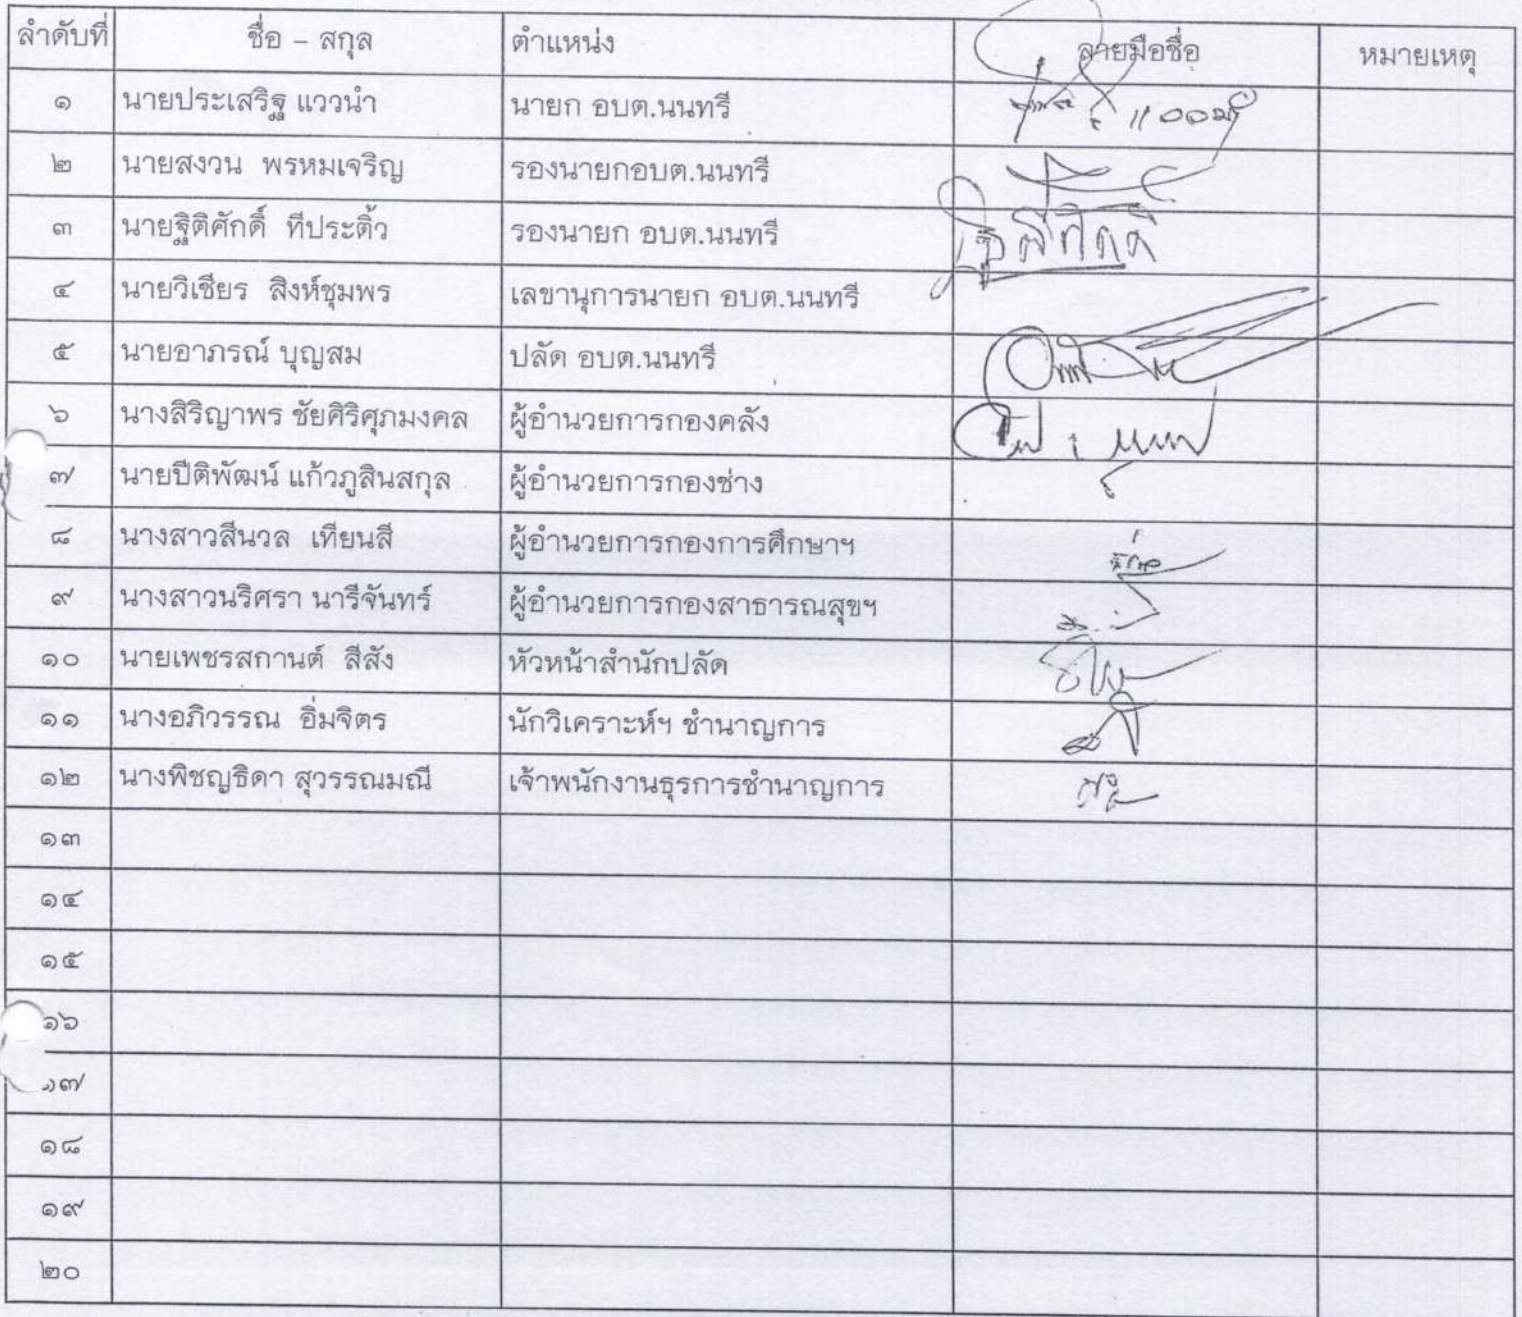 ลำดับที่ ชื่อ – สกุล ตำแหน่ง ลายมือชื่อ หมายเหตุ
๑ นายประเสริฐ แววนำ นายก อบต.นนทรี
๒ นายสงวน พรหมเจริญ รองนายกอบต.นนทรี
๓ นายฐิติศักดิ์ ทีประติ้ว รองนายก อบต.นนทรี
๔ นายวิเชียร สิงห์ชุมพร เลขานุการนายก อบต.นนทรี
๕ นายอาภรณ์ บุญสม ปลัด อบต.นนทรี
๖ นางสิริญาพร ชัยศิริศุภมงคล ผู้อำนวยการกองคลัง
๗ นายปิติพัฒน์ แก้วภูสินสกุล ผู้อำนวยการกองช่าง
๘ นางสาวสีนวล เทียนสี ผู้อำนวยการกองการศึกษาฯ
๙ นางสาวนริศรา นารีจันทร์ ผู้อำนวยการกองสาธารณสุขฯ
๑๐ นายเพชรสกานต์ สีสัง หัวหน้าสำนักปลัด
๑๑ นางอภิวรรณ อิ่มจิตร นักวิเคราะห์ฯ ชำนาญการ
๑๒ นางพิชญธิดา สุวรรณมณี เจ้าพนักงานธุรการชำนาญการ
๑๓
๑๔
๑๕
๑๖
๑๗
๑๘
๑๙
๒๐